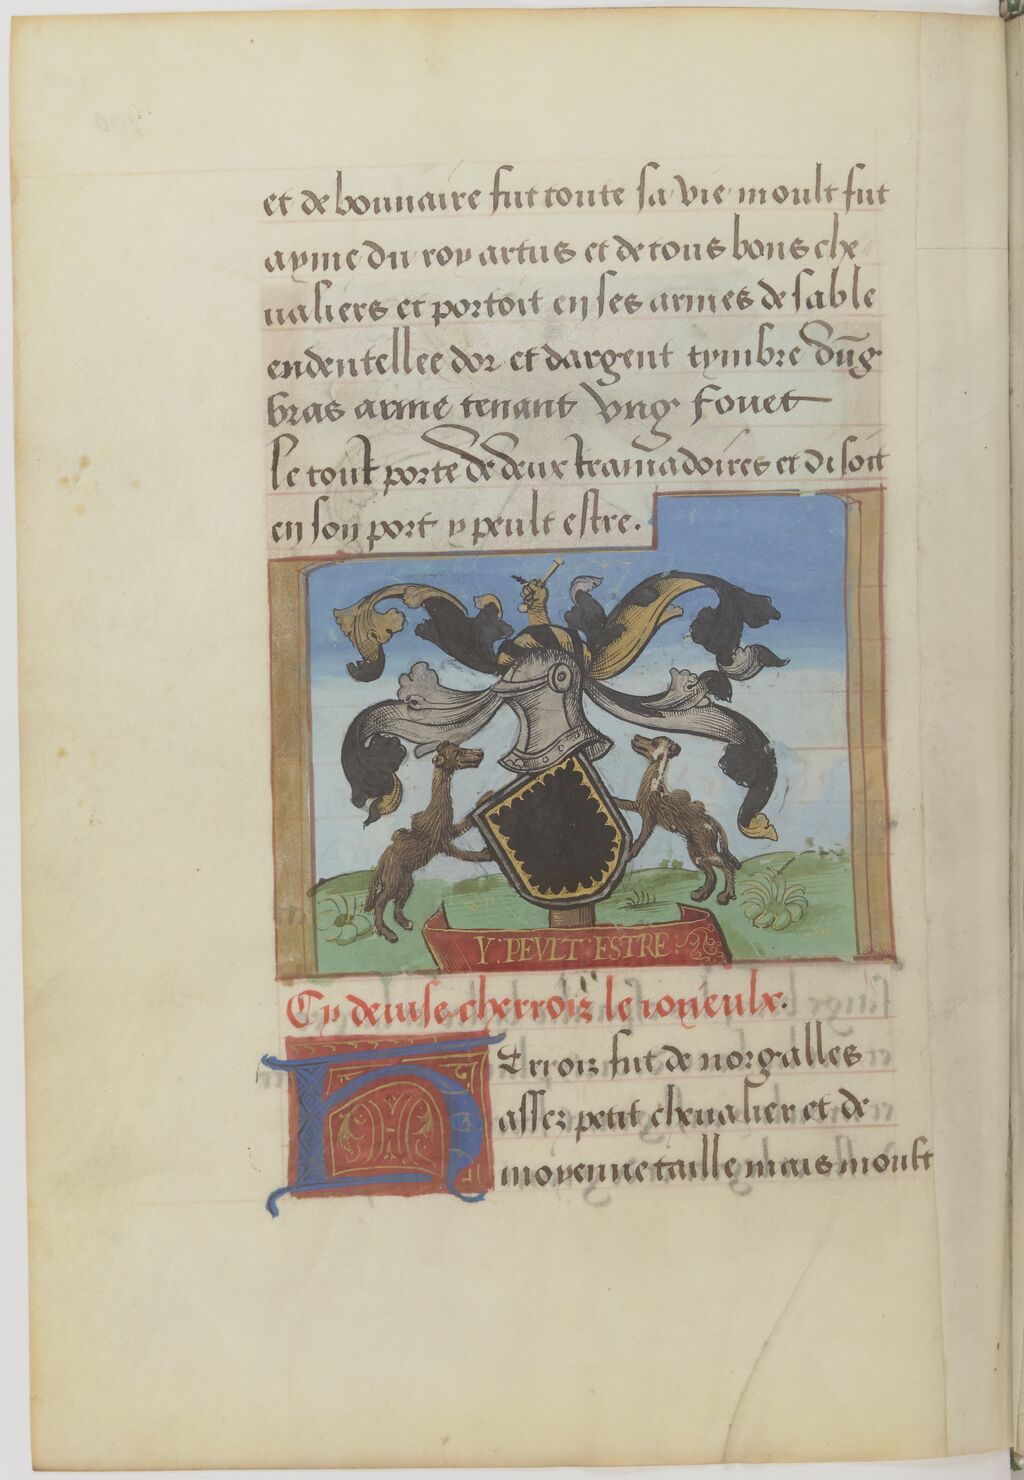 et de bonnaire fut toute sa vie moult fut
ayme du roy artus et de tous bons che
ualiers et portoit en ses armes de sable
endentellee dor et dargent tymbre dūg
bras arme tenant vng fouet
le tout porte de deux tramadoires et disoit
en son port y peult estre.
Y : PEVLT : ESTRE :
Cy deuise cherroiz le ioyeulx.
HErroiz fut de norgalles
assez petit cheualier et de
moyenne taille mais moult